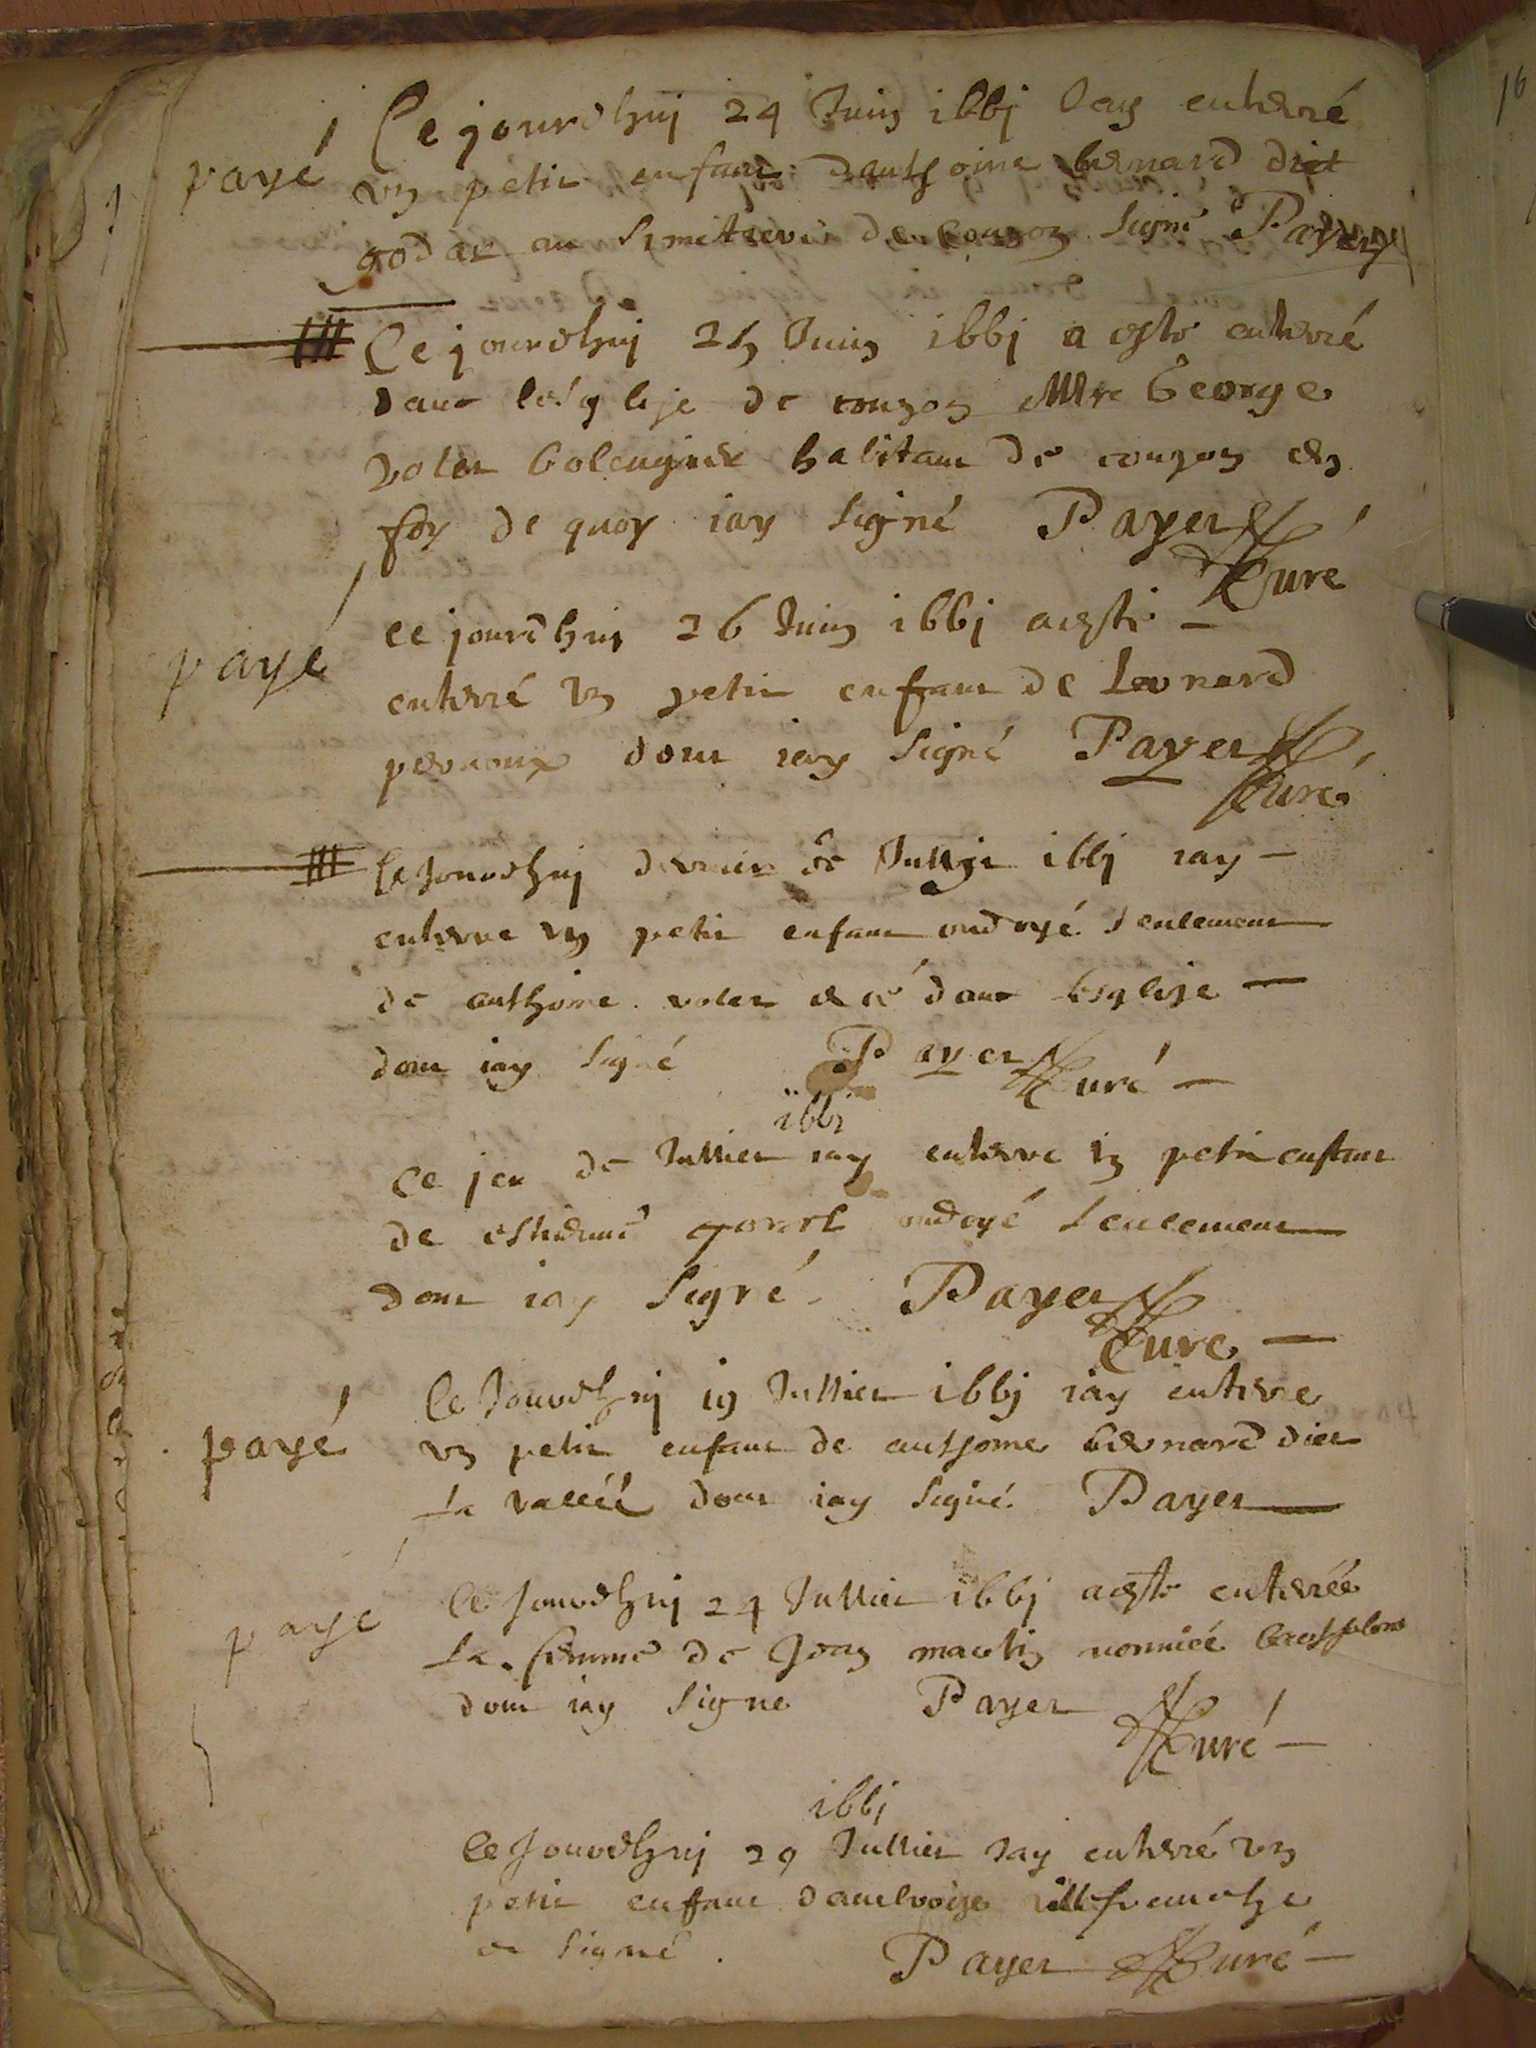 Ce jourdhuj 24 Juin i66j Jay enterré
payé un petit enfant danthoine bernard dict
godar au simetiere de couzon signé Payer
Ce jourdhuj 25 Juin i66j a esté enterré
dans lesglise de couzon Mre George
volet bolengier habitant de couzon en
foy de quoy iay signé Payet
Curé
ce jourdhuj 26 Juin i66j a esté
payé enterré un petit enfant de Leonard
dont iay signé Payet
Curé
Ce Jourdhuj dernier de Jullet i66j iay
enterre un petit enfant ondoyé seulement
de anthoine volet dans lesglise
dont iay signé Payet Curé
i66j
Ce jer de Julliet iay enterre un petit enfant
de estienne ondoyé seulement
dont iay signé Payet
Curé
Ce Jourdhuj 19 Julliet i66j iay enterre
payé un petit enfant de anthoine bernard diet
la vallée dont iay signé Payet
Ce Jourdhuj 24 Julliet i66j a esté enterrée
payé la femme de Jean martin nommée
dont iay signé Payet
Curé
i66j
Ce Jourdhuj 29 Julliet Jay enterré un
petit enffant dambroise villefranche
et signé Payet Curé